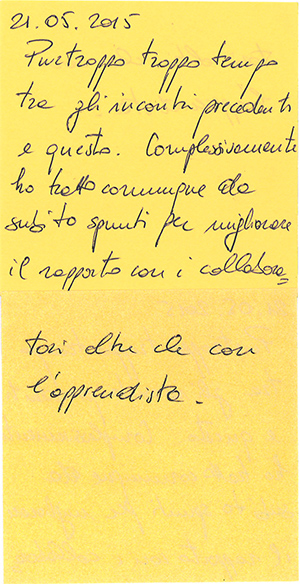 21.05.2015
Purtroppo troppo tempo
tra gli incontri precedenti
e questo. Complessivamente
ho tratto comunque da
subito spunti per migliorare
il rapporto con i collabora=
tori oltre che con
l'apprendista.